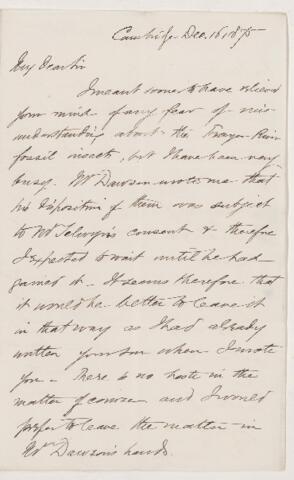 Cambridge Dec. 16, 1875
My dear Sir
I meant sooner to have relieved
your mind of any fear of mis-
understanding about the Frazer River
fossil insects, but I have been very
busy. Mr Dawson wrote me that
his disposition of them was subject
to Mr Selwyn's consent & therefore
I expected to wait until he had
gained it. It seems therefore that
it would be better to leave it
in that way as I had already
written your son when I wrote
you. There is no haste in the
matter of course and I would
prefer to leave the matter in
Mr Dawson's hands.